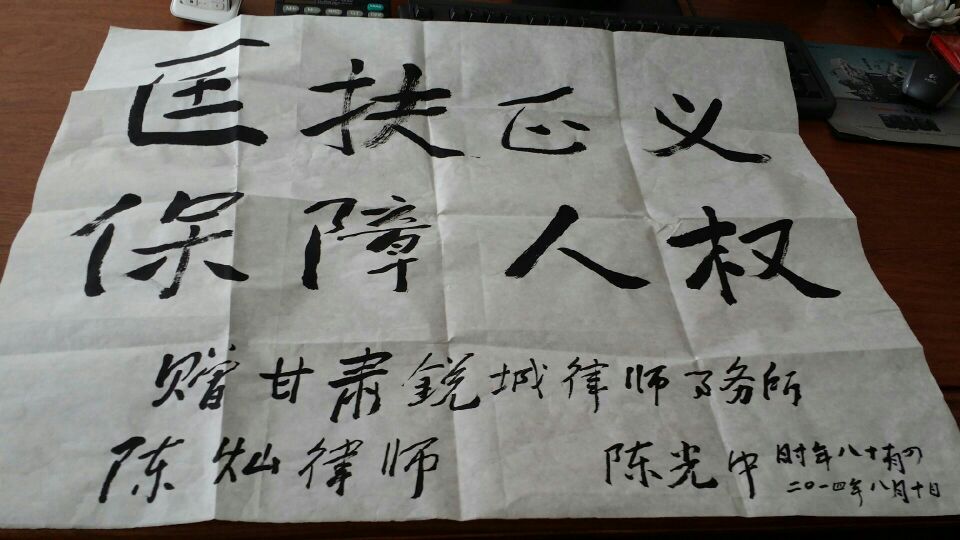 匡扶正义
保障人权
赠甘肃銳城律师事务所
陈灿律师 陈光中 时年八十有四
二〇一四年八月十日